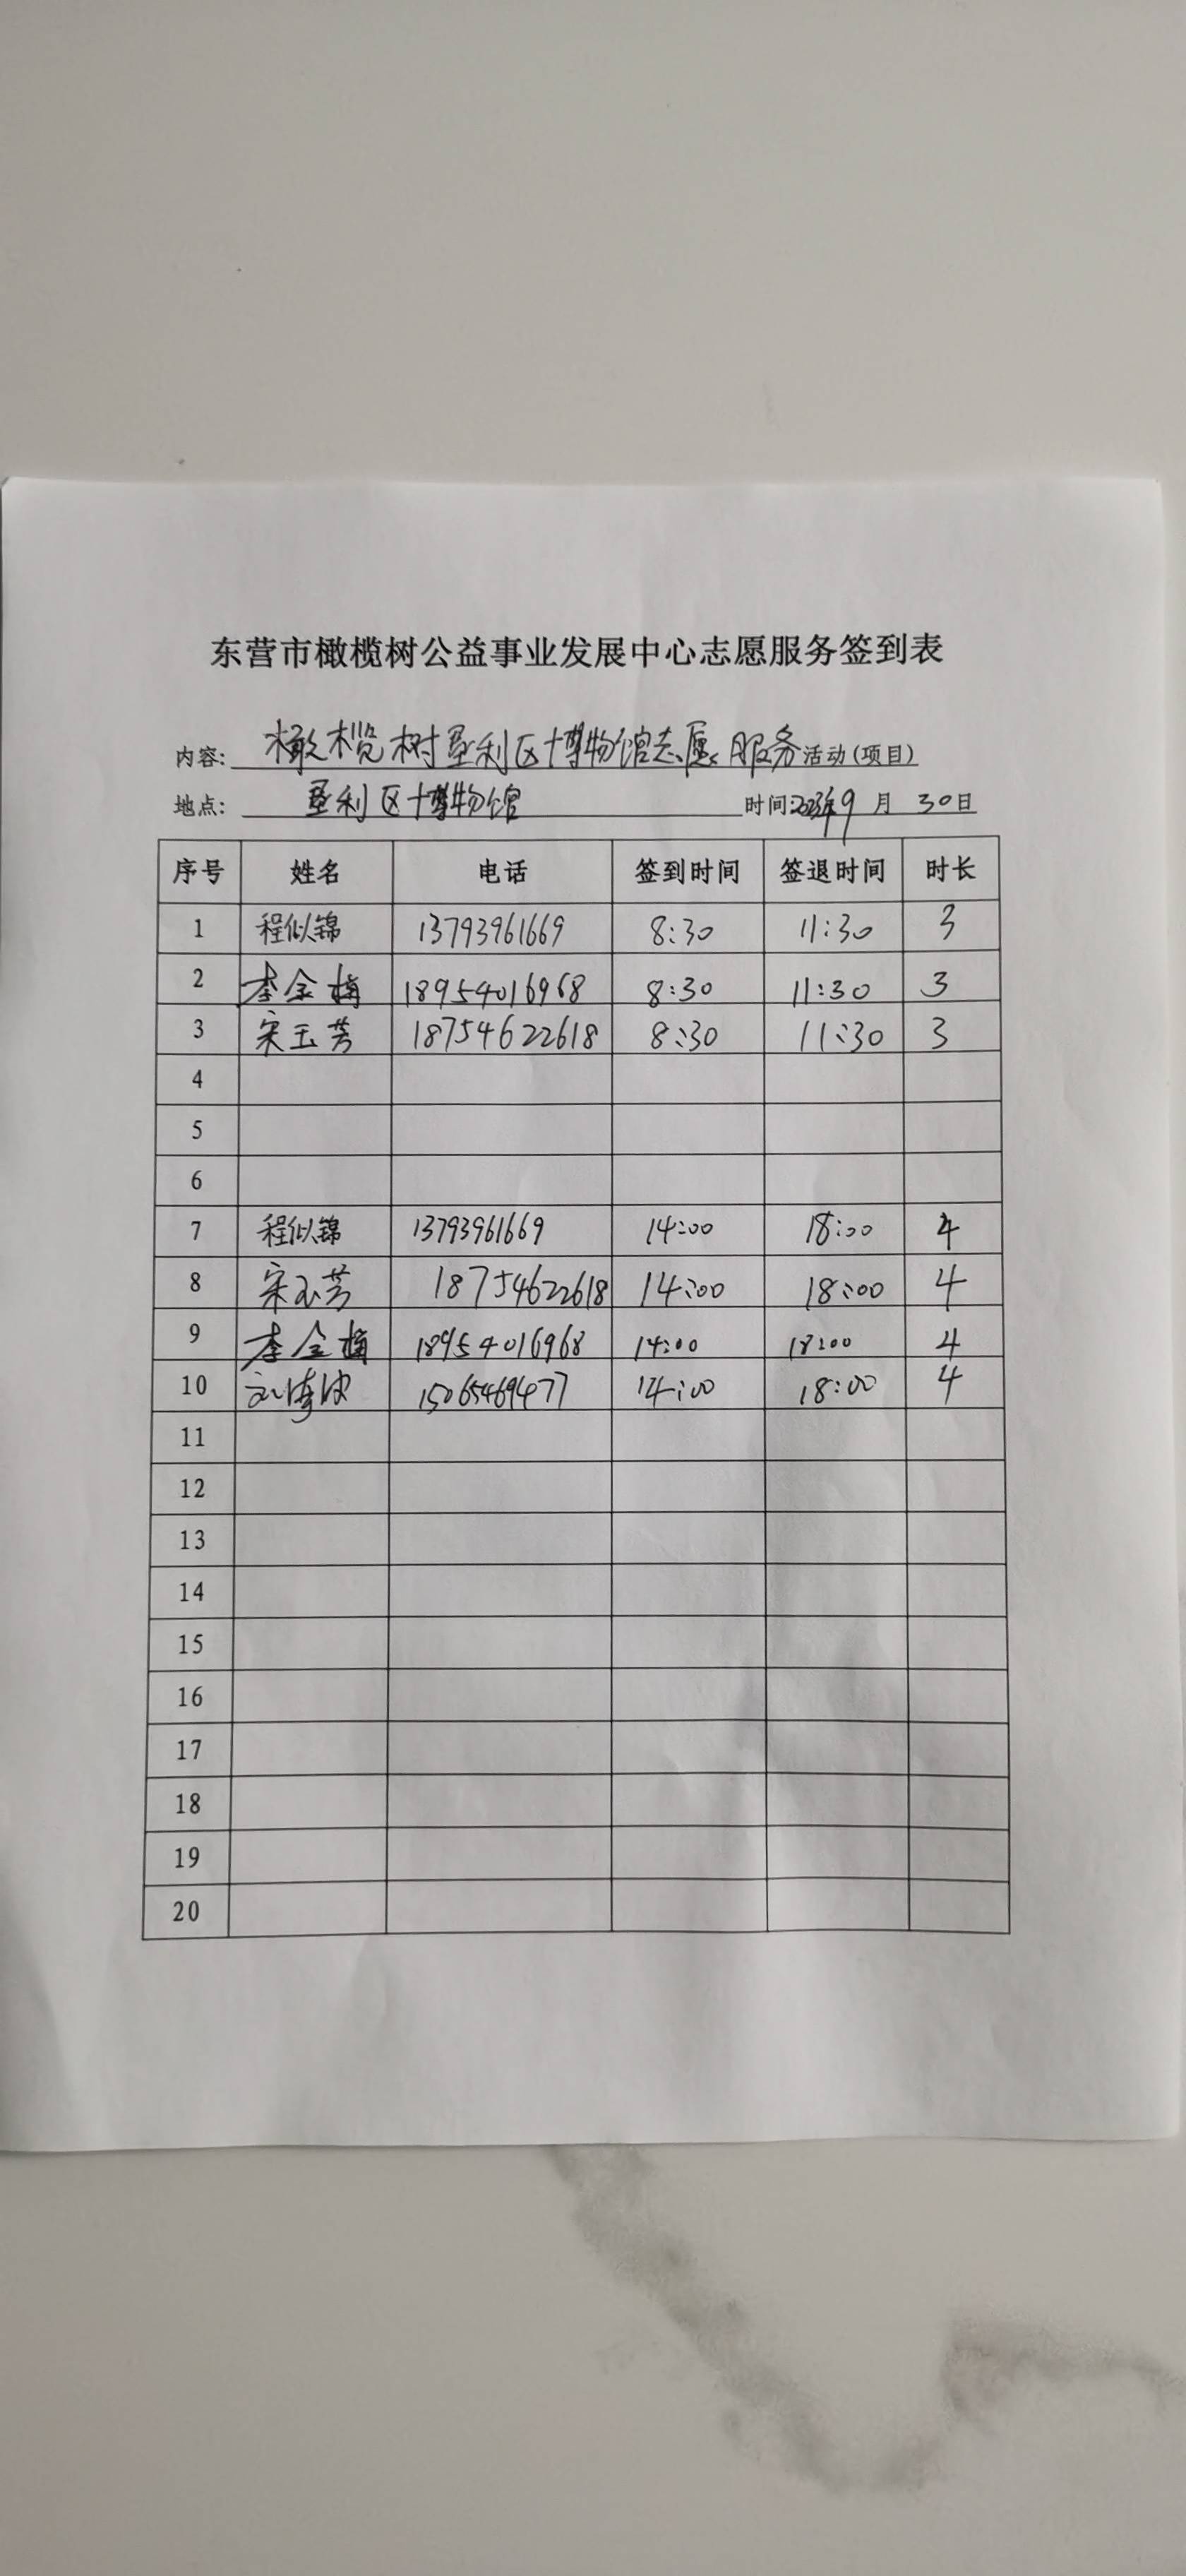 东营市橄榄树公益事业发展中心志愿服务签到表
内容: 橄榄树垦利区博物馆志愿服务活动(项目)
地点: 垦利区博物馆 时间:2023年9月30日
序号 姓名 电话 签到时间 签退时间 时长
1 程似锦 13793961669 8:30 11:30 3
2 李金梅 18954016968 8:30 11:30 3
3 宋玉芳 18754622618 8:30 11:30 3
4
5
6
7 程似锦 13793961669 14:00 18:00 4
8 宋玉芳 18754622618 14:00 18:00 4
9 李金梅 18954016968 14:00 18:00 4
10 15065469477 14:00 18:00 4
11
12
13
14
15
16
17
18
19
20